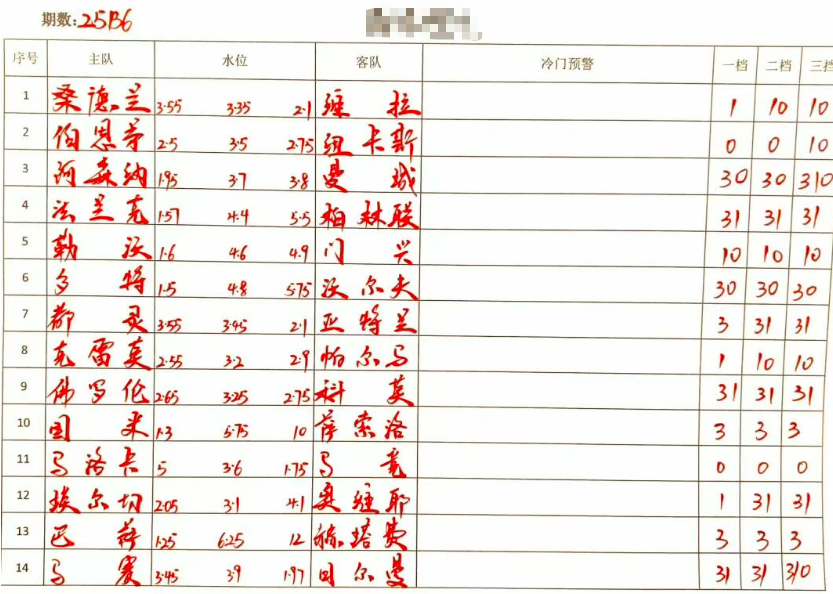 期数:25136
序号 主队 水位 客队 冷门预警 一档 二档 三档
1 桑德兰 3·55 3·35 2·1 维拉 1 10 10
2 伯恩茅 2·5 3·5 2·75 纽卡斯 0 0 10
3 阿森纳 1·95 3·7 3·8 曼城 30 30 310
4 法兰克 1·57 4·4 5·5 柏林联 31 31 31
5 勒沃 1·6 4·6 4·9 门兴 10 10 10
6 多特 1·5 4·8 5·75 沃尔夫 30 30 30
7 都灵 3·55 3·45 2·1 亚特兰 3 31 31
8 克雷莫 2·55 3·2 2·9 帕尔马 1 10 10
9 佛罗伦 2·65 3·25 2·75 科莫 31 31 31
10 国米 1·3 5·75 10 萨索洛 3 3 3
11 马洛卡 5 3·6 1·75 马竞 0 0 0
12 埃尔切 2·05 3·1 4·1 奥维耶 1 31 31
13 巴萨 1·25 6·25 12 赫塔费 3 3 3
14 马赛 3·45 3·9 1·97 巴尔曼 31 31 310